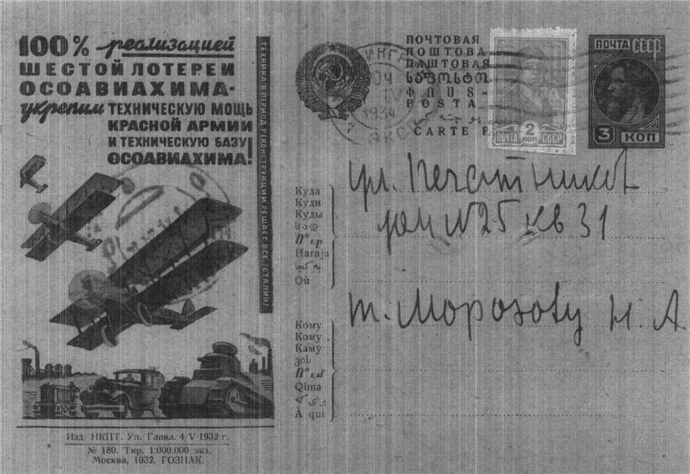 100% реализацией
ШЕСТОЙ ЛОТЕРЕИ
ОСОАВИАХИМА-
укрепим ТЕХНИЧЕСКУЮ МОЩЬ
КРАСНОЙ АРМИИ
И ТЕХНИЧЕСКУЮ БАЗУ
ОСОАВИАХИМА!
ТЕХНИКА В ПЕРИОД РЕКОНСТРУКЦИИ РЕШАЕТ ВСЕ. /СТАЛИН/
Изд. НКПТ. Уп. Главл. 4/V 1932 г.
№ 180. Тир. 1.000.000 экз.
Москва, 1932. ГОЗНАК.
1934
ПОЧТОВАЯ
ПОШТОВА
ПАШТОВАЯ
POSTA
CARTE P
2 КОП
ПОЧТА СССР
ПОЧТА СССР
3 КОП
Куда
Куди
Куды
Haraja
Où
ул. Печатников
дом №25 кв 31
Кому
Кому
Каму
Qima
À qui
т. Морозову Н. А.